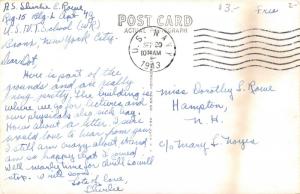 A.S. Shirlie C. Rowe
Bldg. 15 Apt. 43
U.S.N.T. School (WR)
Bronx, New York City.
Dear Dot,
Here is part of the
grounds and are really
very pretty. The building is
where we go for lectures and
our physicals also sick bay.
How about a letter. I sure
would love to hear from you.
I still am crazy about
am so happy that I joined
Well nearly time for drill so will
stop in
Lots of Love
Shirlie
POST CARD
ACTUAL PHOTOGRAPH
U.S. NAVY
SEP 20
10 30 AM
1943
$3.-
Free
Miss Dorothy L. Rowe
Hampton
N. H.
c/o Mary L. Noyes